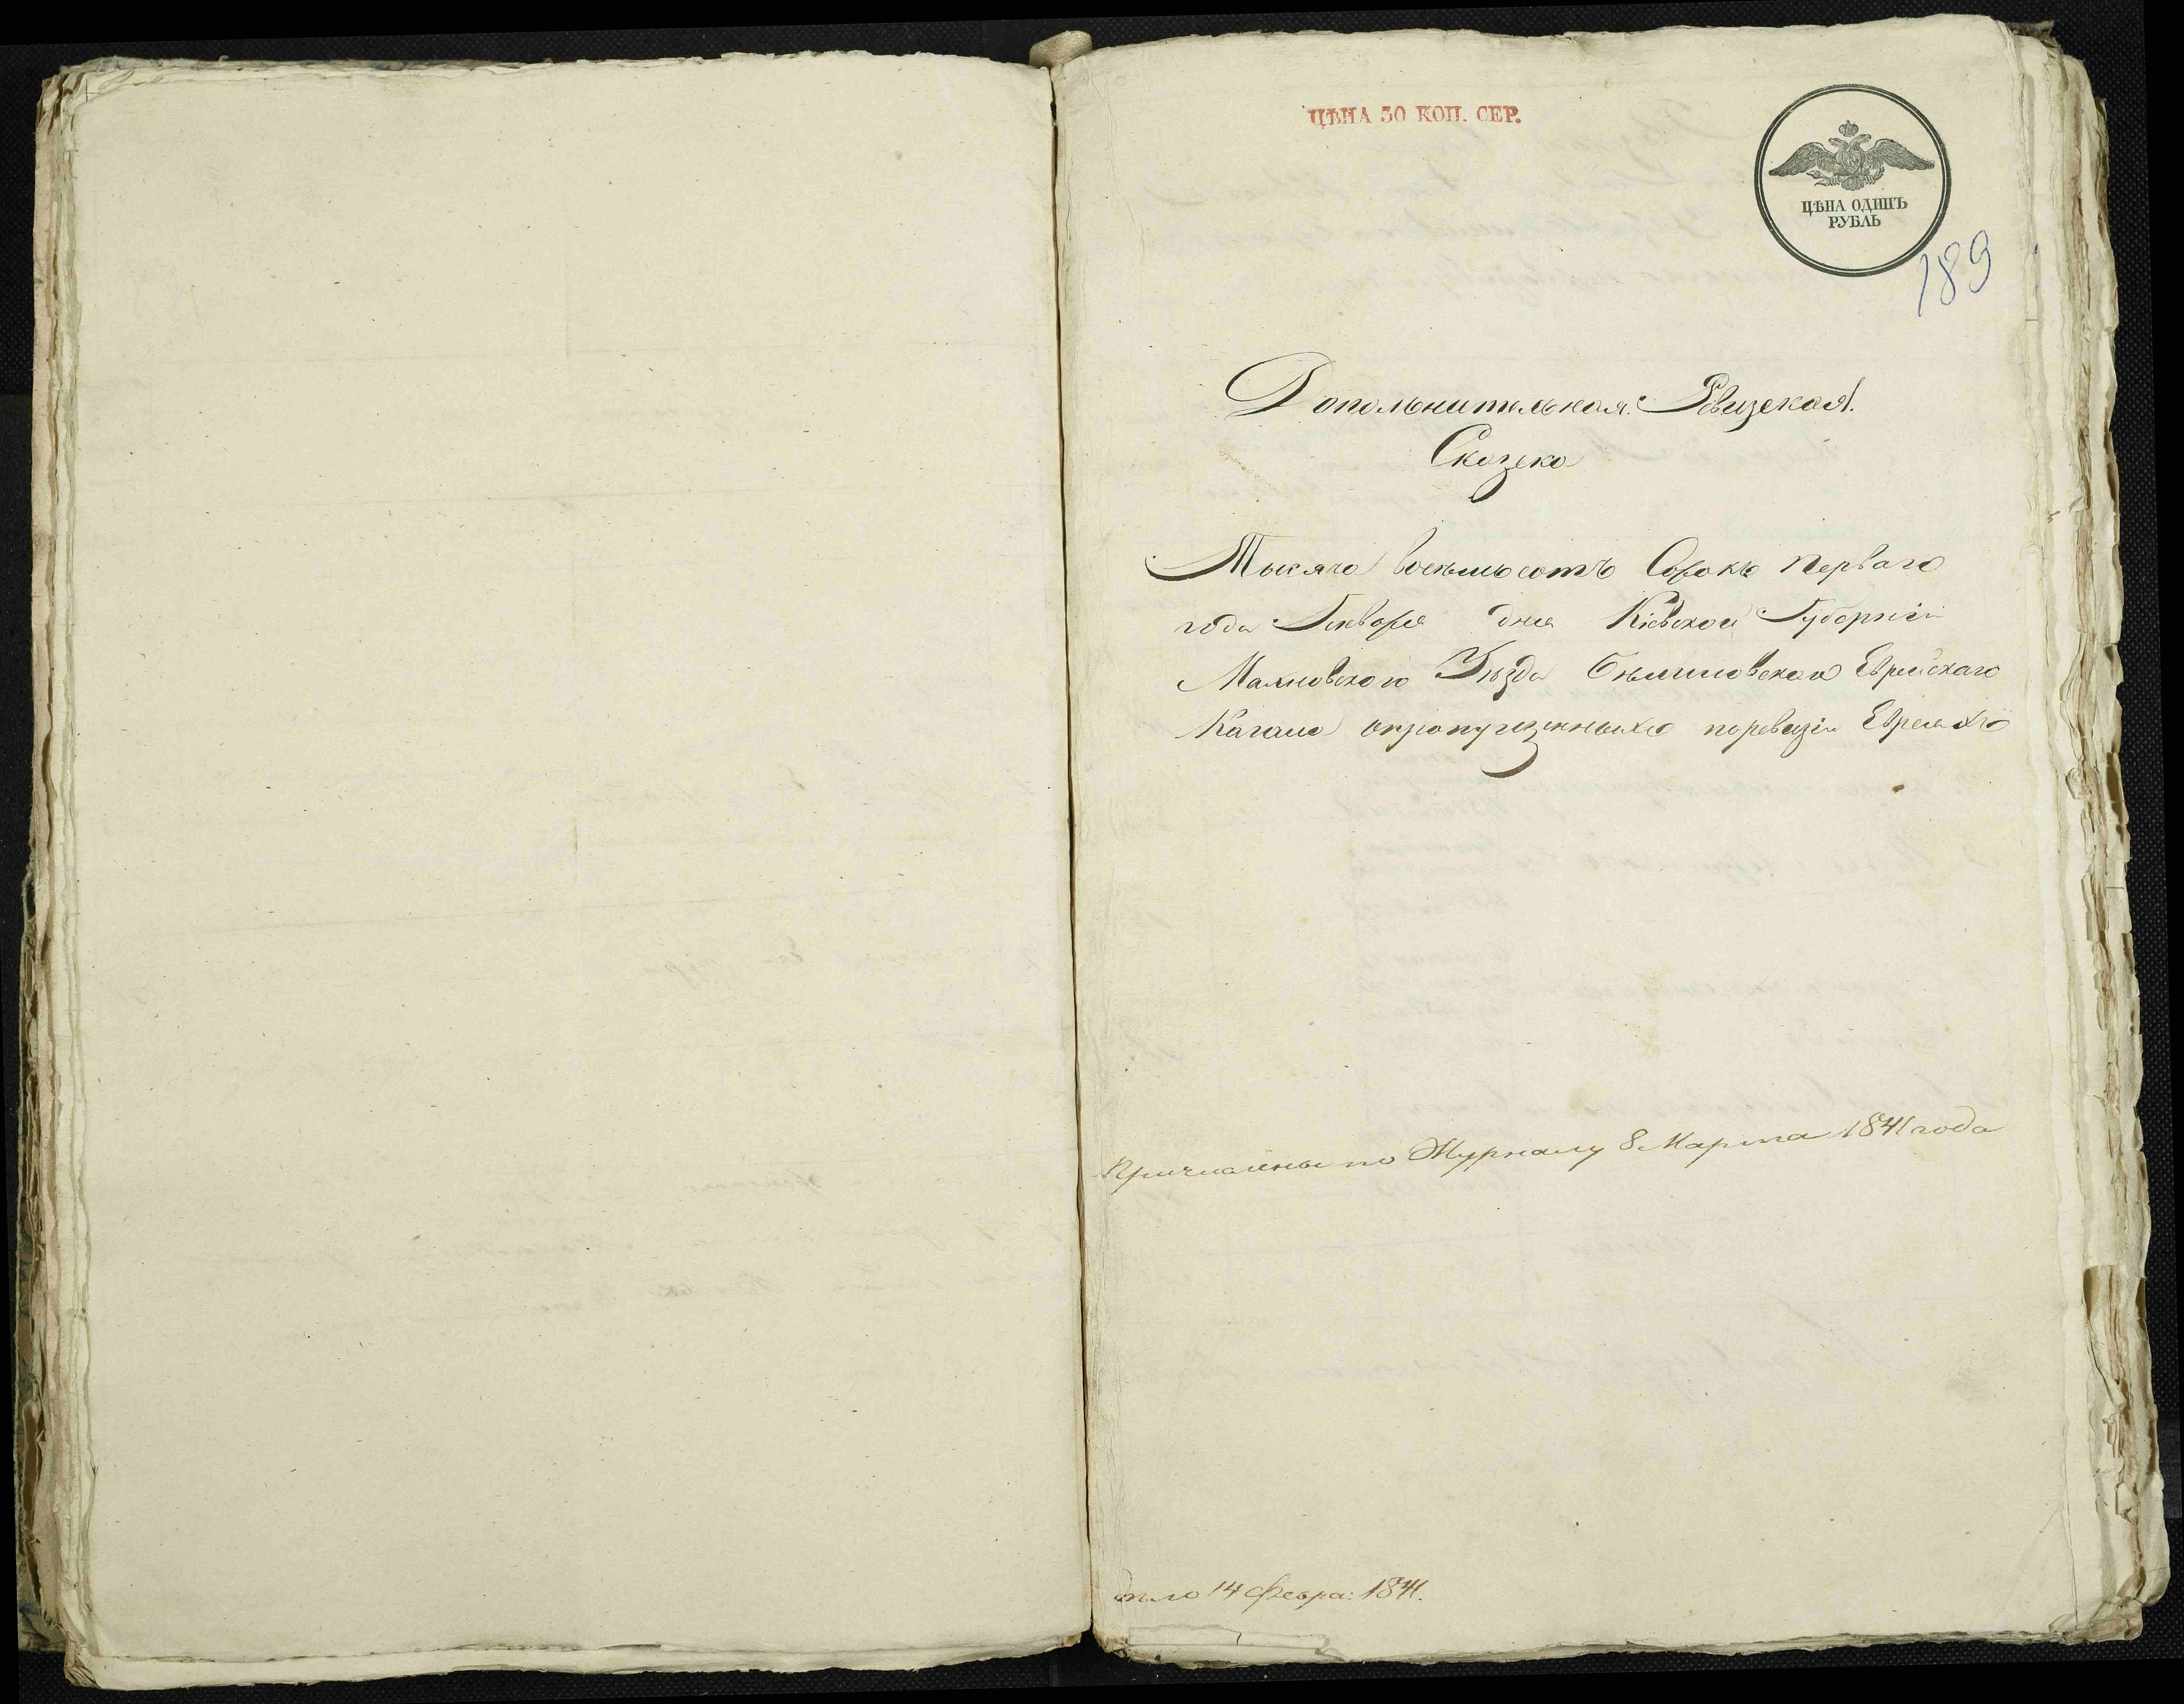 ЦѢНА 30 КОП. СЕР.
ЦѢНА ОДИНЪ
РУБЛЬ
189
Дополнительная Ревизская
Сказка
Тысяча восемьсотъ Сорокъ перваго
года Генваря дня Кіевской Губерніи
Махновского Уѣзда Бѣлиловского Еврейскаго
Кагала опропущенныхъ поревизіи Евреяхъ
Причислены по Журналу 8 Марта 1841 года
14 Февра: 1841.